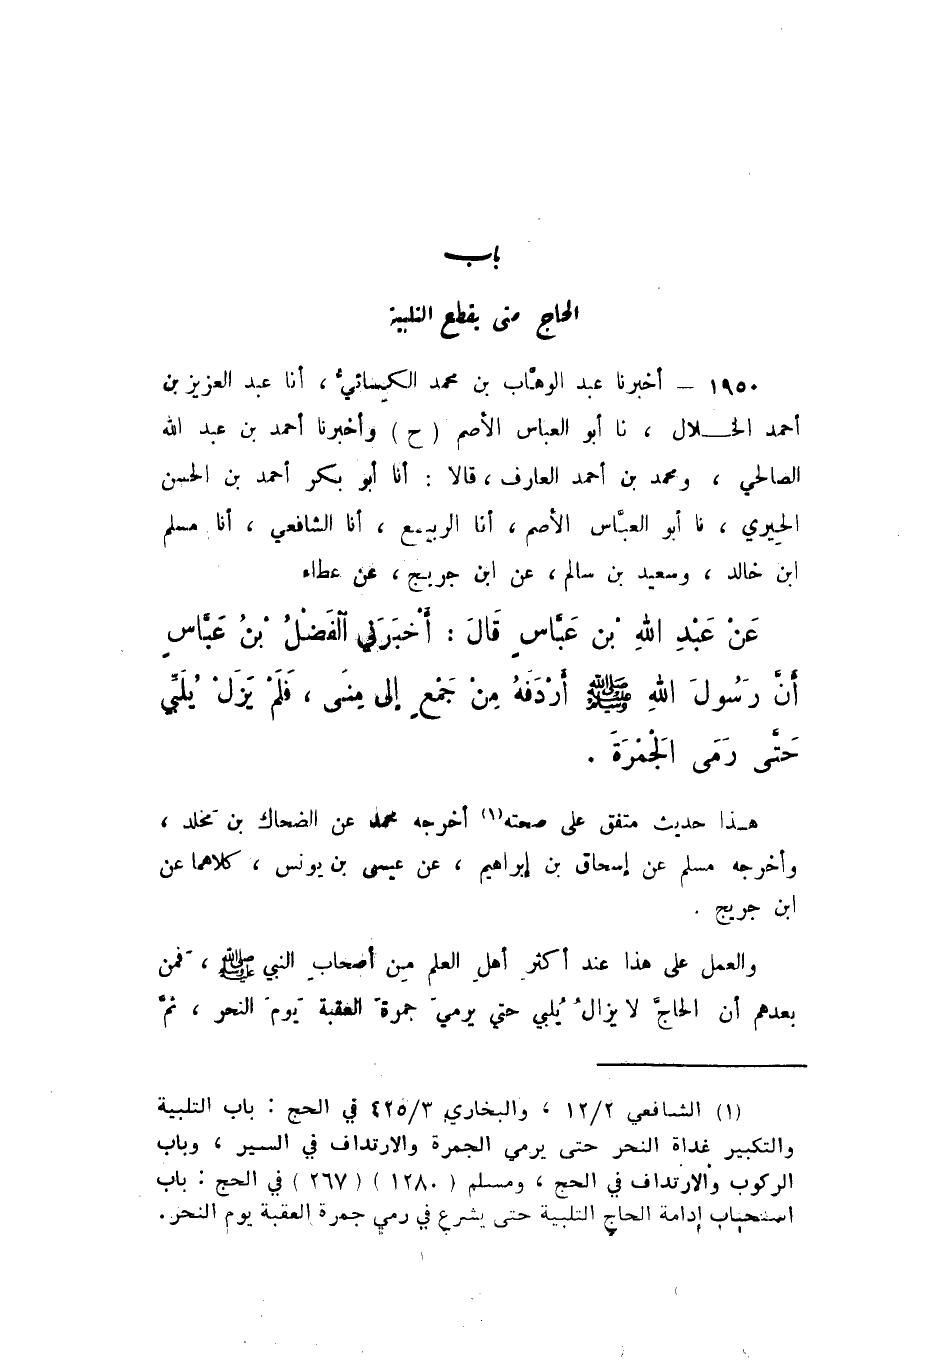 باب
الحاج متى يقطع التلبية
١٩٥٠ – أخبرنا عبد الوهَّاب بن محمد الكِسائيُّ ، أنا عبد العزيز بن
أحمد الخـلال ، نا أبو العباس الأصم ( ح ) وأخبرنا أحمد بن عبد الله
الصالحي ، ومحمد بن أحمد العارف ، قالا : أنا أبو بكر أحمد بن الحسن
الحِيري ، نا أبو العبَّاس الأصم ، أنا الربيـع ، أنا الشافعي ، أنا مسلم
ابن خالد ، وسعيد بن سالم ، عن ابن جريج ، عن عطاء
عَنْ عَبْدِ اللهِ بْنِ عَبَّاسٍ قَالَ : أَخْبَرَنِي ٱلْفَضْلُ بْنُ عَبَّاسٍ
أَنَّ رَسُولَ اللهِ ﷺ أَرْدَفَهُ مِنْ جَمْعٍ إِلى مِنَى ، فَلَمْ يَزَلْ يُلَبِّي
حَتَّى رَمَى الْجَمْرَةَ .
هـذا حديث متفق على صحته(١) أخرجه محمد عن الضحاك بن مَخلد ،
وأخرجه مسلم عن إسحاق بن إبراهيم ، عن عيسى بن يونس ، كلاهما عن
ابن جريج .
والعمل على هذا عند أكثرِ أهلِ العلم مِن أصحابِ النبي ﷺ ، فَمن
بعدهم أن الحاجَّ لا يزالُ يُلبي حتي يرميَ جمرةَ العقبة يَومَ النحر ، ثمَّ
(١) الشافعي ١٢/٢ ، والبخاري ٤٢٥/٣ في الحج : باب التلبية
والتكبير غداة النحر حتى يرمي الجمرة والارتداف في السير ، وباب
الركوب والارتداف في الحج ، ومسلم ( ١٢٨٠ ) ( ٢٦٧ ) في الحج : باب
استحباب إدامة الحاج التلبية حتى يشرع في رمي جمرة العقبة يوم النحر .